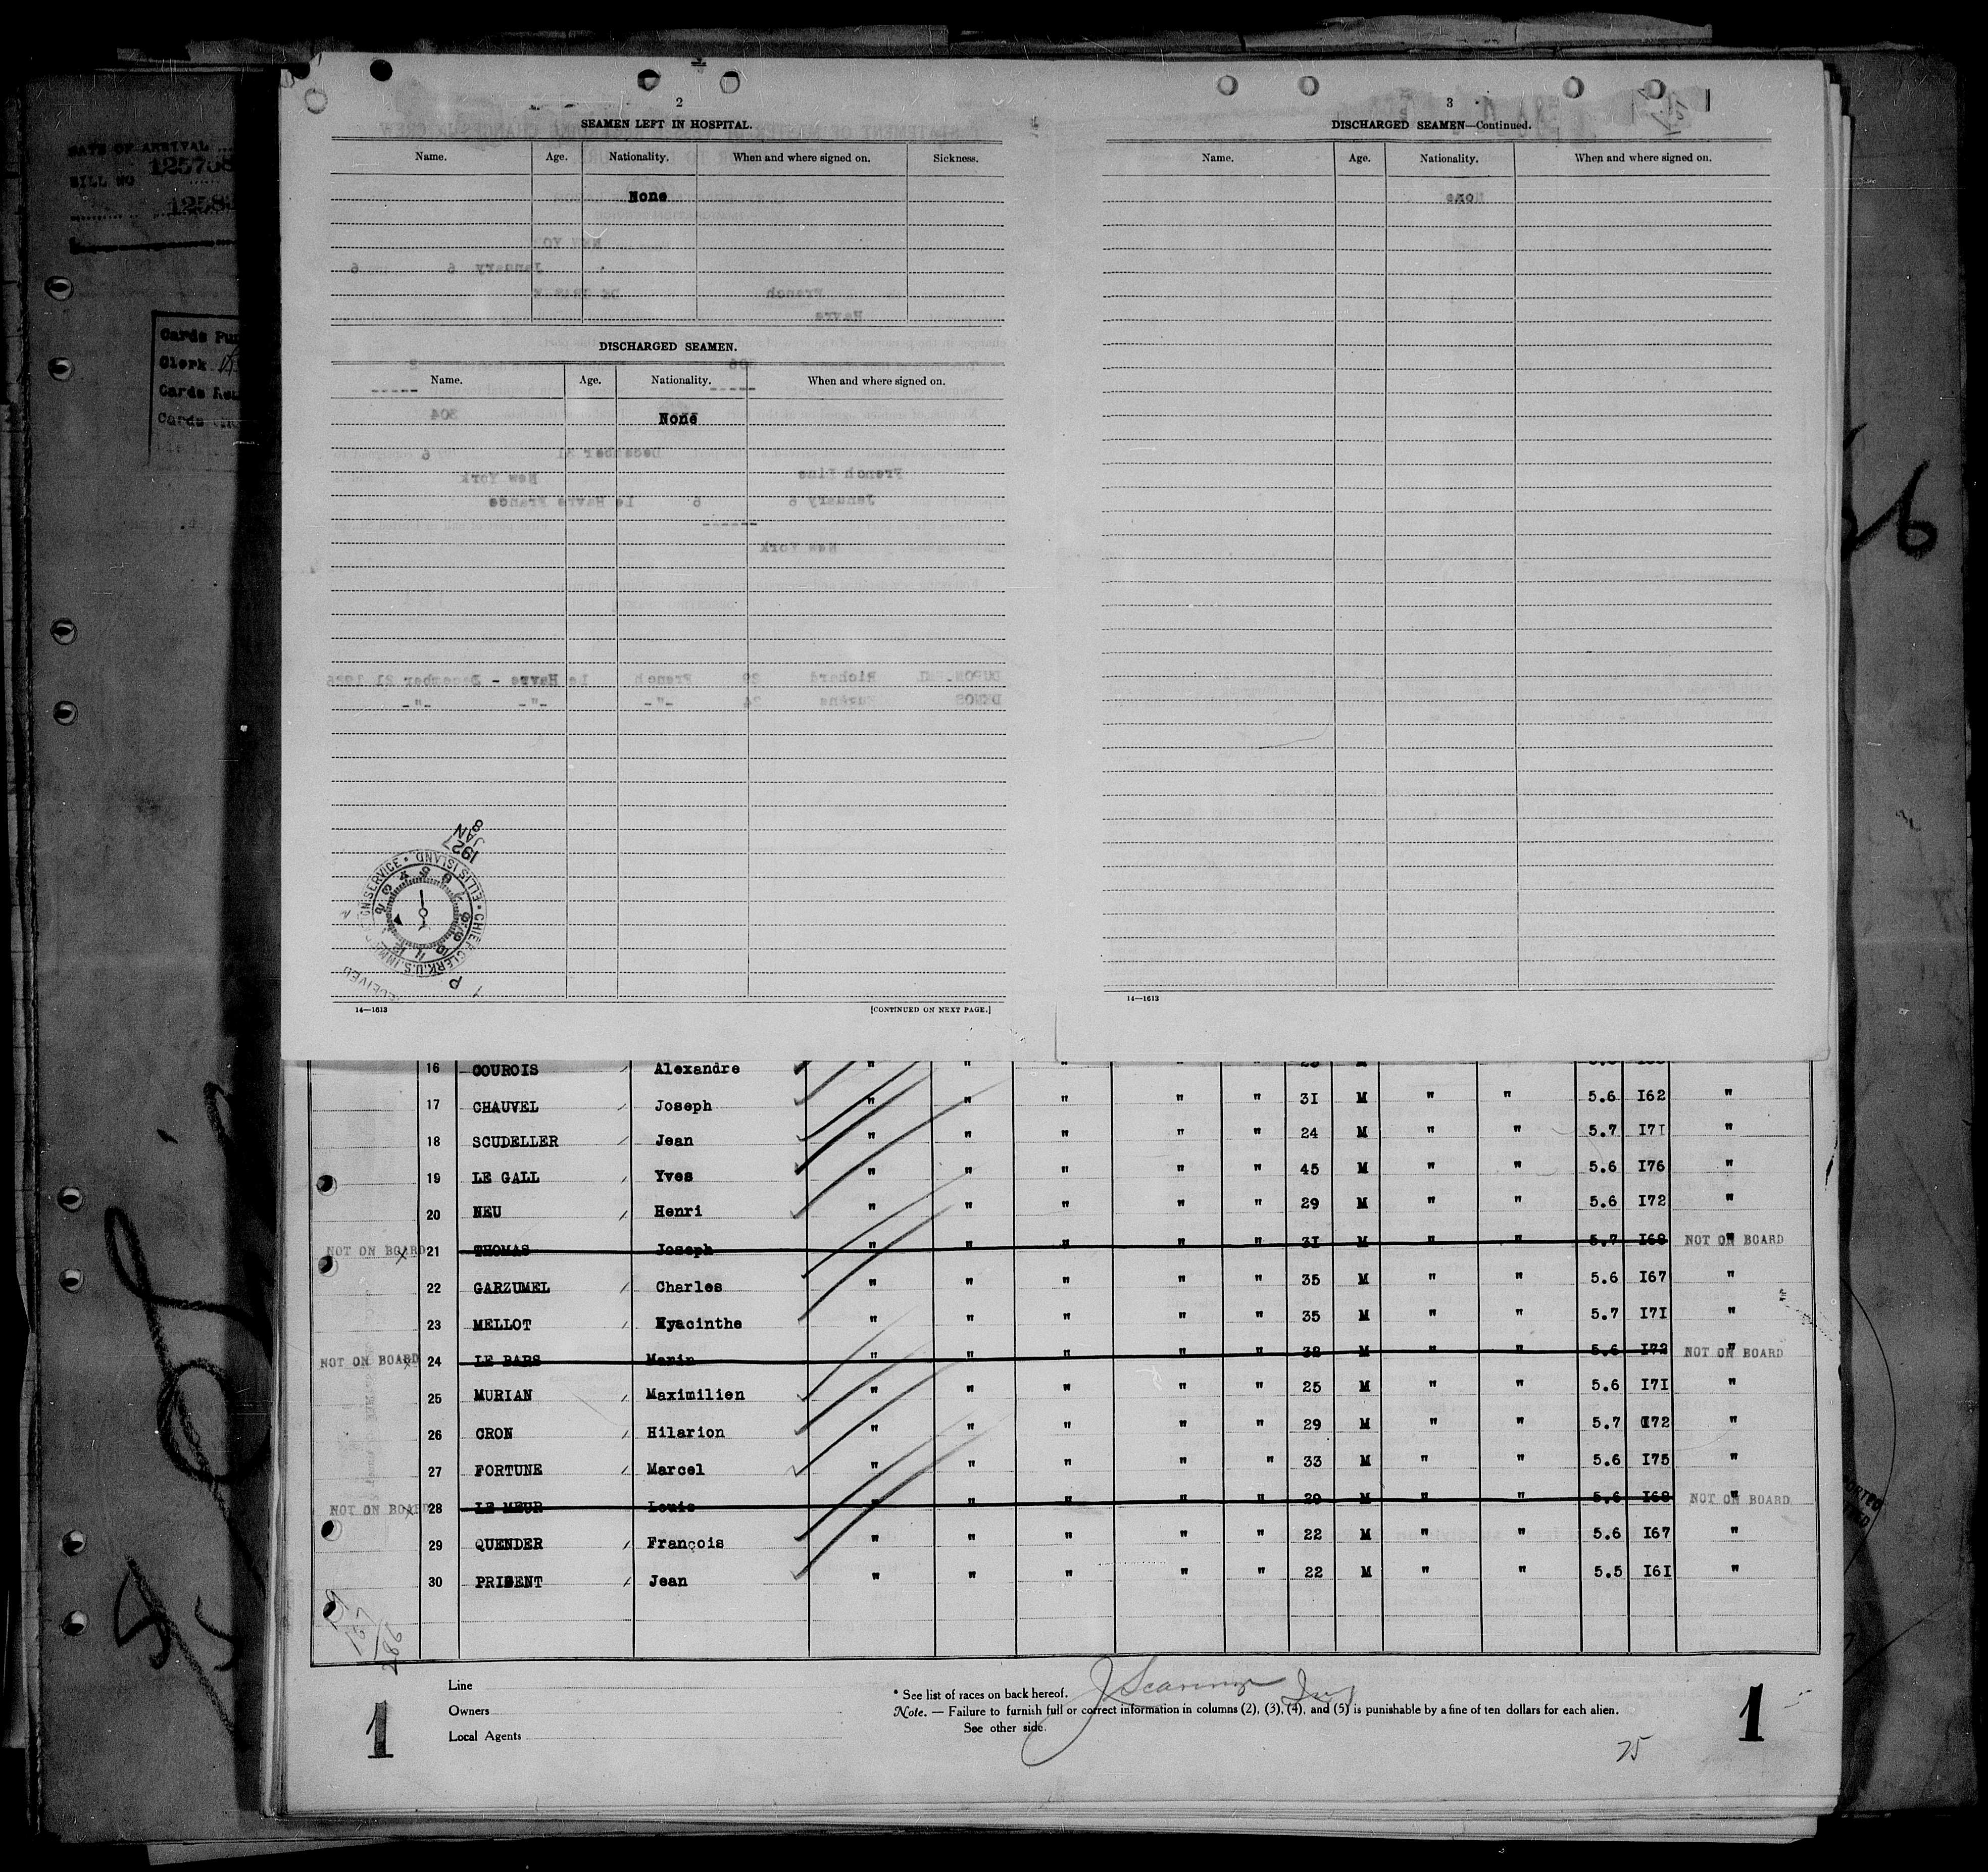 DATE OF ARRIVAL
125758
BILL NO
1258
Cards Pu
Clerk
Cards
Cards
2
SEAMEN LEFT IN HOSPITAL.
Name. Age. Nationality. When and where signed on. Sickness.
None
DISCHARGED SEAMEN.
Name. Age. Nationality. When and where signed on.
None
1927
JAN
8
ELLIS ISLAND • CHIEF CLERK, U.S. IMM SERVICE •
P
14—1613 [CONTINUED ON NEXT PAGE.]
3
DISCHARGED SEAMEN—Continued.
Name. Age. Nationality. When and where signed on.
None
14—1613
16 COUROIS Alexandre " " " " "
17 CHAUVEL Joseph " " " " " 31 M " " 5.6 I62 "
18 SCUDELLER Jean " " " " " 24 M " " 5.7 I7I "
19 LE GALL Yves " " " " " 45 M " " 5.6 I76 "
20 NEU Henri " " " " " 29 M " " 5.6 I72 "
NOT ON BOARD x 21 THOMAS Joseph " " " " " 3I M " " 5.7 I68 " NOT ON BOARD
22 GARZUMEL Charles " " " " " 35 M " " 5.6 I67 "
23 MELLOT Hyacinthe " " " " " 35 M " " 5.7 I7I "
NOT ON BOARD x 24 LE BARS Marin " " " " " 38 M " " 5.6 I72 " NOT ON BOARD
25 MURIAN Maximilien " " " " " 25 M " " 5.6 I7I "
26 CRON Hilarion " " " " " 29 M " " 5.7 I72 "
27 FORTUNE Marcel " " " " " 33 M " " 5.6 I75 "
NOT ON BOARD x 28 LE MEUR Louis " " " " " 29 M " " 5.6 I68 " NOT ON BOARD
29 QUENDER François " " " " " 22 M " " 5.6 I67 "
30 PRIGENT Jean " " " " " 22 M " " 5.5 I6I "
Line
Owners
Local Agents
* See list of races on back hereof.
Note. — Failure to furnish full or correct information in columns (2), (3), (4), and (5) is punishable by a fine of ten dollars for each alien.
See other side.
1
1
75